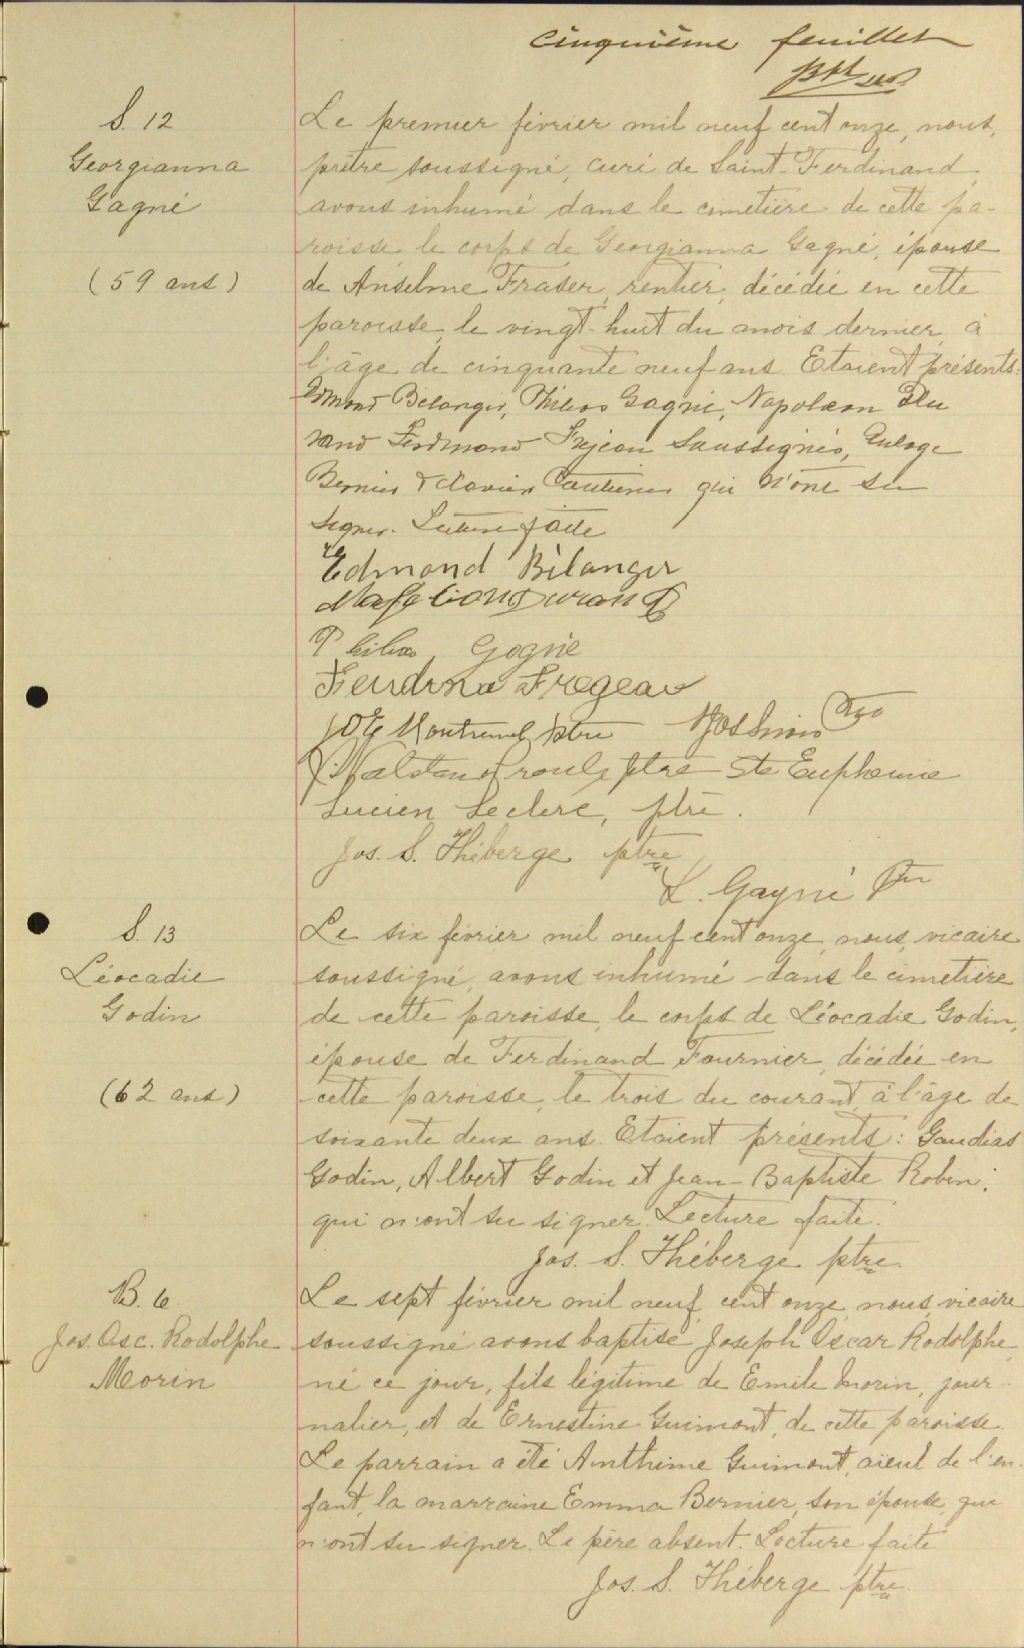 Cinquième feuillet
S. 12
Georgianna
Gagné
(59 ans)
Le premier février mil neuf cent onze, nous,
prêtre soussigné, curé de Saint-Ferdinand,
avons inhumé dans le cimetière de cette pa-
roisse le corps de Georgianna Gagné, épouse
de Anselme Fraser, rentier, décédée en cette
paroisse, le vingt-huit du mois dernier, à
l'âge de cinquante neuf ans. Etaient présents:
Edmond Bélanger, Philias Gagné, Napoléon Du
rand Ferdinand Frejeau Soussignés, Euloge
Bernier & Octavien Cantienne qui n'ont su
signer. Lecture faite
Edmond Bélanger
Napoleon Durand
Philias Gagné
Ferdina Fregeau
JOE Montreuil ptre
Proulx ptre Ste Euphemie
Lucien Leclerc, ptre.
Jos. S. Théberge ptre
L. Gagné Ptre
S. 13
Léocadie
Godin
(62 ans)
Le six février mil neuf cent onze, nous, vicaire
soussigné, avons inhumé dans le cimetière
de cette paroisse, le corps de Léocadie Godin,
épouse de Ferdinand Fournier, décédée en
cette paroisse, le trois du courant, à l'âge de
soixante deux ans. Etaient présents: Gaudias
Godin, Albert Godin et Jean-Baptiste Robin,
qui n'ont su signer. Lecture faite.
Jos. S. Théberge ptre
B. 6
Jos. Osc. Rodolphe
Morin
Le sept février mil neuf cent onze, nous, vicaire
soussigné avons baptisé Joseph Oscar Rodolphe,
né ce jour, fils légitime de Emile Morin, jour-
nalier, et de Ernestine Guimont, de cette paroisse.
Le parrain a été Anthime Guimont, aïeul de l'en-
fant, la marraine Emma Bernier, son épouse, qui
n'ont su signer. Le père absent. Lecture faite
Jos. S. Théberge ptre